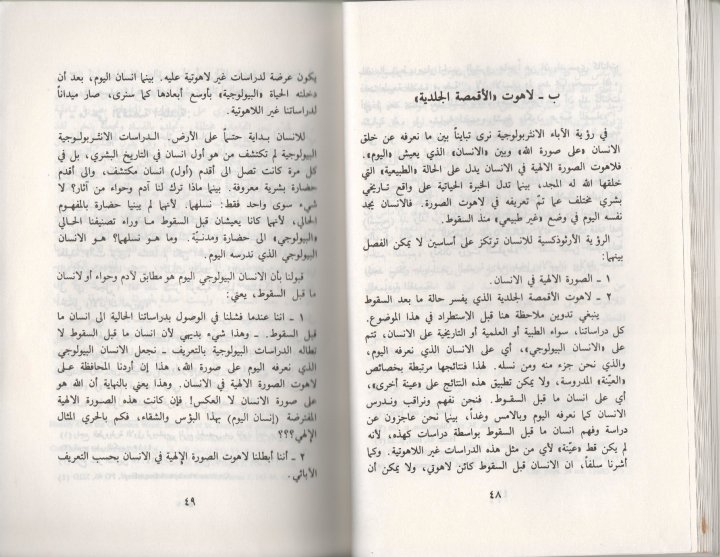 ب ـ لاهوت «الأقمصة الجلدية»
في رؤية الآباء الانثربولوجية نرى تبايناً بين ما نعرفه عن خلق
الانسان «على صورة الله» وبين «الانسان» الذي يعيش «اليوم».
فلاهوت الصورة الالهية في الانسان يدل على الحالة «الطبيعية» التي
خلقها الله له المجد، بينما تدل الخبرة الحياتية على واقع تاريخي
بشري مختلف عما تمّ تعريفه في لاهوت الصورة. فالانسان يجد
نفسه اليوم في وضع «غير طبيعي» منذ السقوط.
الرؤية الأرثوذكسية للانسان ترتكز على أساسين لا يمكن الفصل
بينهما:
١ ـ الصورة الالهية في الانسان.
٢ ـ لاهوت الأقمصة الجلدية الذي يفسر حالة ما بعد السقوط
ينبغي تدوين ملاحظة هنا قبل الاستطراد في هذا الموضوع.
كل دراساتنا، سواء الطبية أو العلمية أو التاريخية على الانسان، تتم
على «الانسان البيولوجي»، أي على الانسان الذي نعرفه اليوم،
والذي نحن جزء منه ومن نسله. لهذا فنتائجها مرتبطة بخصائص
«العيّنة» المدروسة، ولا يمكن تطبيق هذه النتائج على «عينة أخرى»،
أي على انسان ما قبل السقوط. فنحن نفهم ونراقب وندرس
الانسان كما نعرفه اليوم وبالامس وغداً، بينما نحن عاجزون عن
دراسة وفهم انسان ما قبل السقوط بواسطة دراسات كهذه، لأنه
لم يكن قط «عيّنة» لأي من مثل هذه الدراسات غير اللاهوتية. وكما
أشرنا سلفاً، ان الانسان قبل السقوط كائن لاهوتي، ولا يمكن أن
٤٨
يكون عرضة لدراسات غير لاهوتية عليه. بينما انسان اليوم، بعد أن
دخلته الحياة «البيولوجية» بأوسع أبعادها كما سنرى، صار ميداناً
لدراساتنا غير اللاهوتية.
للانسان بداية حتماً على الأرض. الدراسات الانثربولوجية
البيولوجية لم تكتشف من هو أول انسان في التاريخ البشري، بل في
كل مرة كانت تصل الى أقدم (أول) انسان مكتشف، والى أقدم
حضارة بشرية معروفة. بينما ماذا ترك لنا آدم وحواء من آثار؟ لا
شيء سوى واحد فقط: نسلهما. لأنهما لم يبنيا حضارة بالمفهوم
الحالي، لأنهما كانا يعيشان قبل السقوط ما وراء تصنيفنا الحالي
«البيولوجي» الى حضارة ومدنيّة. وما هو نسلهما؟ هو الانسان
البيولوجي الذي تدرسه اليوم.
قبولنا بأن الانسان البيولوجي اليوم هو مطابق لآدم وحواء أو لانسان
ما قبل السقوط، يعني:
١ ـ اننا عندما فشلنا في الوصول بدراساتنا الحالية الى انسان ما
قبل السقوط ـ وهذا شيء بديهي لأن انسان ما قبل السقوط لا
تطاله الدراسات البيولوجية بالتعريف ـ نجعل الانسان البيولوجي
الذي نعرفه اليوم على صورة الله، هذا إن أردنا المحافظة على
لاهوت الصورة الالهية في الانسان. وهذا يعني بالنهاية أن الله هو
على صورة الانسان لا العكس! فإن كانت هذه الصورة الالهية
المفترضة (إنسان اليوم) بهذا البؤس والشقاء، فكم بالحري المثال
الإلهي؟؟؟
٢ ـ أننا أبطلنا لاهوت الصورة الإلهية في الانسان بحسب التعريف
الآبائي.
٤٩